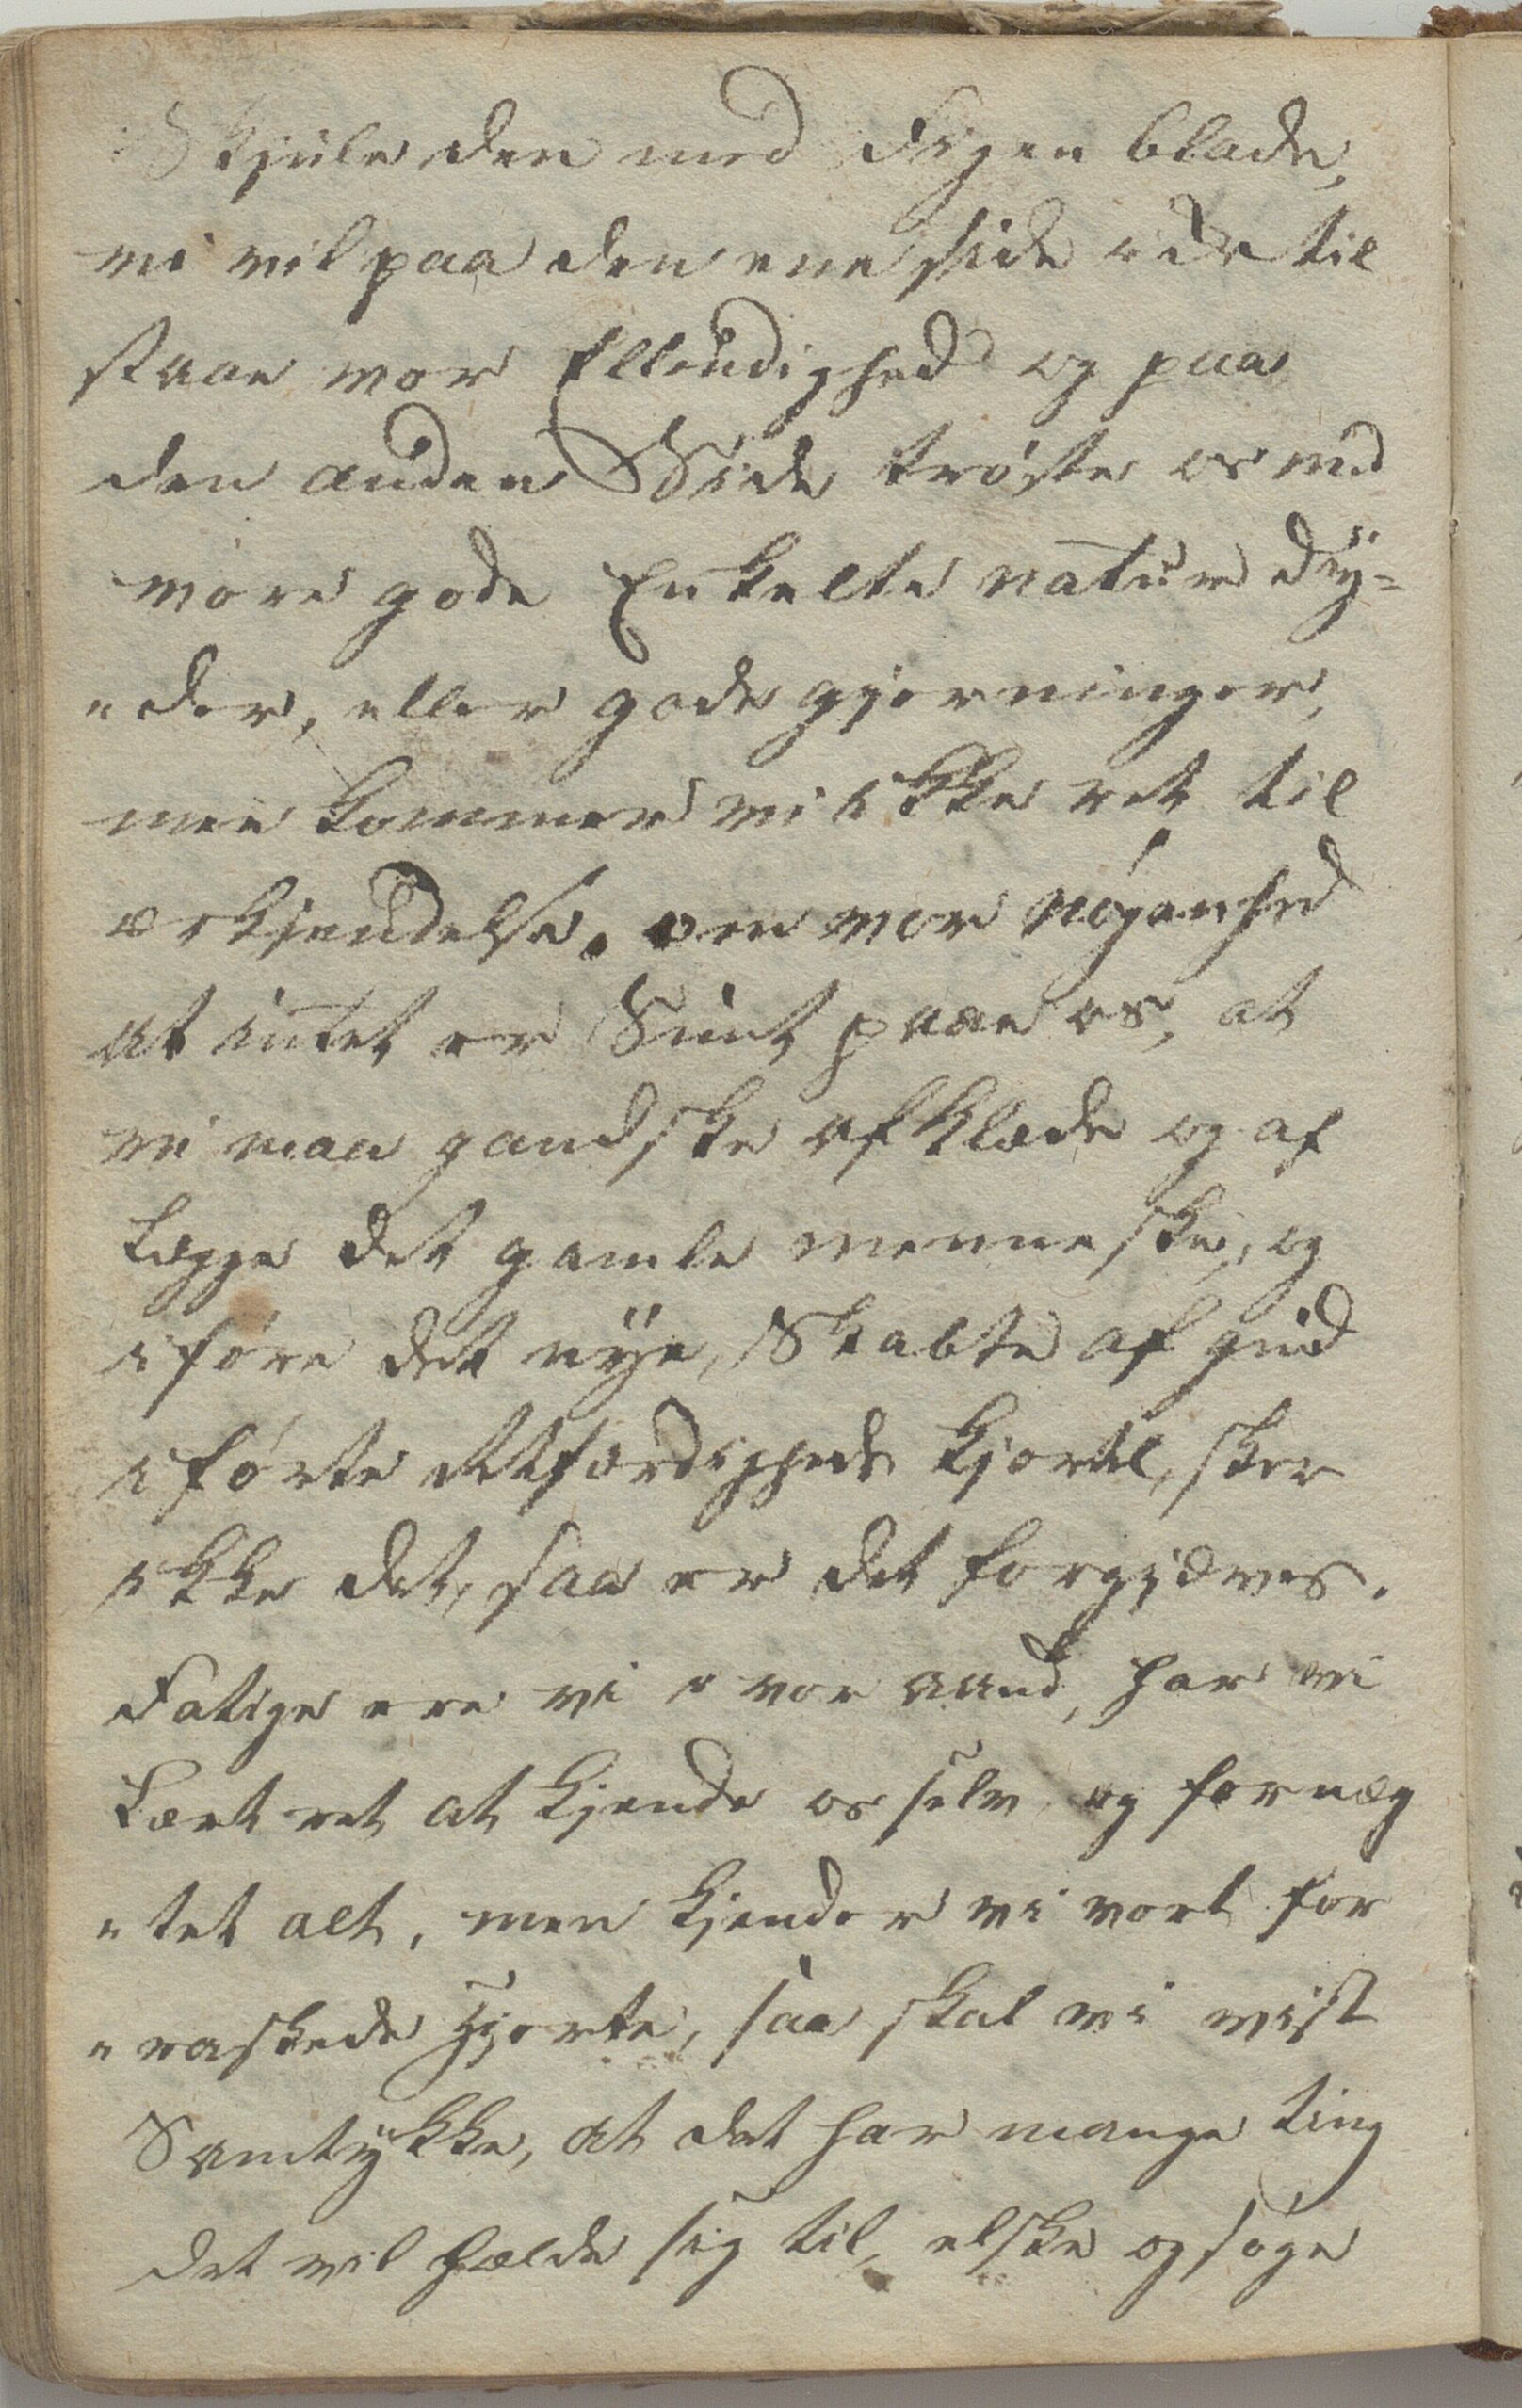 Skjule den med Figen blade,
vi vil paa den ene side ed til
staae vor Ellendighed og paa
den anden Side trøste os med
vore gode Enkelte natur dÿ=
"der, eller gode gjerninger,
men kommer vi ikke ret til
erkjendelse. om vor nøgenhed
at intet er Sunt paae os, at
vi maa gandske afklæde og af
lægge det gamle menneske, og
i føre det nÿe, Skabte af gud
i førte Retfærdigheds kjortel, sker
ikke det, saa er det forgjæves.
Fatige ere vi i vor aand, har vi
Lært ret at kjende os selv og fornæg
"tet alt, men kjender vi vort for
"raskede Hjerte, saa skal vi vist
Samtÿkke, at det har mange ting
det vil holde sig til, elske og søge